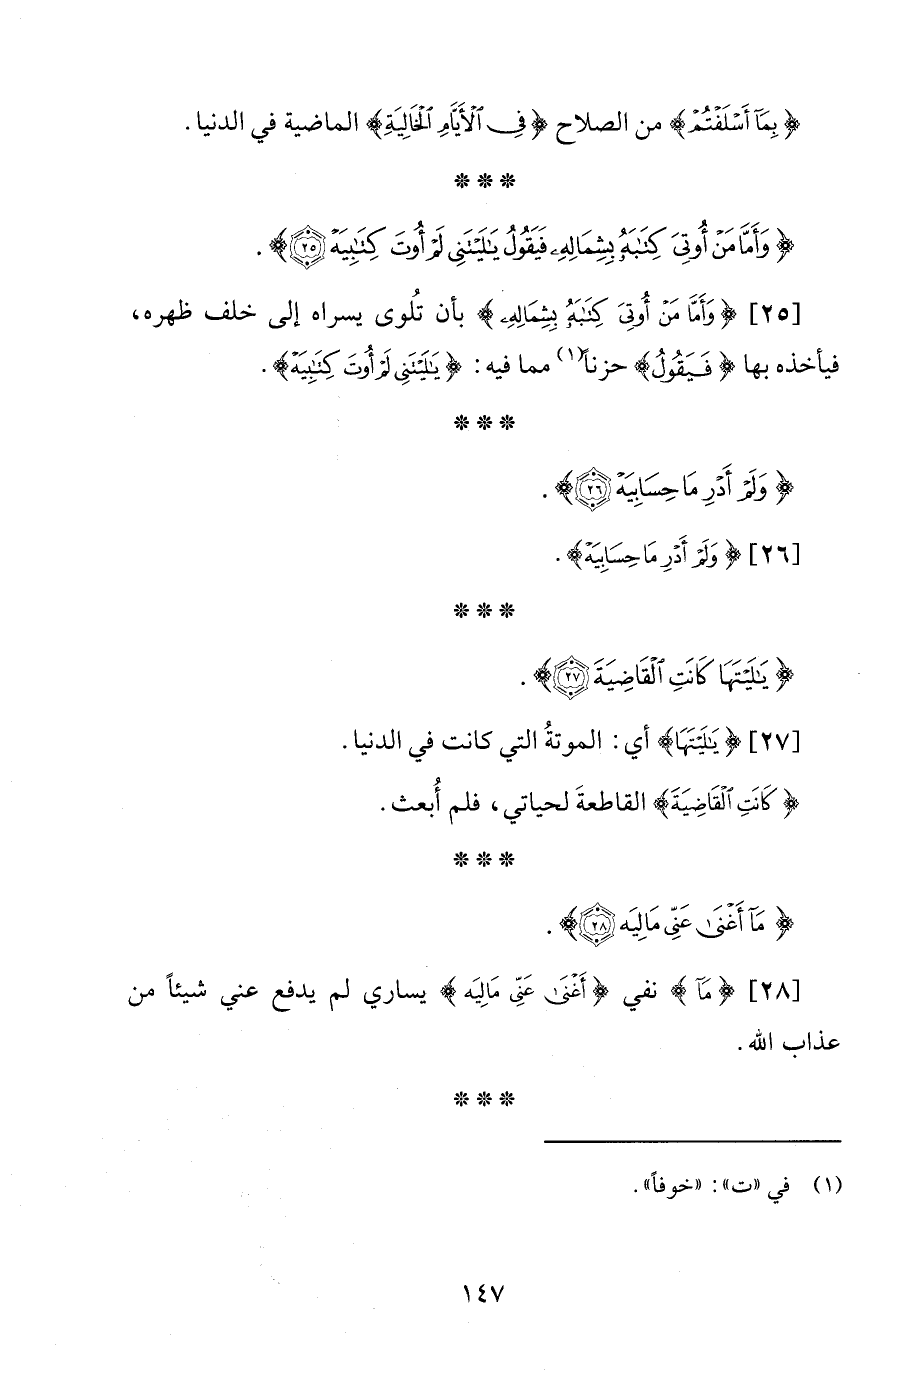 ﴿ بِمَآ أَسْلَفْتُمْ﴾ من الصلاح ﴿ فِى ٱلْأَيَّامِ ٱلْخَالِيَةِ﴾ الماضية في الدنيا.
* * *
﴿ وَأَمَّا مَنْ أُوتِىَ كِتَٰبَهُۥ بِشِمَالِهِۦ فَيَقُولُ يَٰلَيْتَنِى لَمْ أُوتَ كِتَٰبِيَهْ ٢٥﴾.
[٢٥] ﴿ وَأَمَّا مَنْ أُوتِىَ كِتَٰبَهُۥ بِشِمَالِهِۦ ﴾ بأن تُلوى يسراه إلى خلف ظهره،
فيأخذه بها ﴿ فَيَقُولُ﴾ حزناً(١) مما فيه: ﴿ يَٰلَيْتَنِى لَمْ أُوتَ كِتَٰبِيَهْ﴾.
* * *
﴿ وَلَمْ أَدْرِ مَا حِسَابِيَهْ ٢٦﴾.
[٢٦] ﴿ وَلَمْ أَدْرِ مَا حِسَابِيَهْ﴾.
* * *
﴿ يَٰلَيْتَهَا كَانَتِ ٱلْقَاضِيَةَ ٢٧﴾.
[٢٧] ﴿ يَٰلَيْتَهَا﴾ أي: الموتةُ التي كانت في الدنيا.
﴿ كَانَتِ ٱلْقَاضِيَةَ﴾ القاطعةَ لحياتي، فلم أُبعث.
* * *
﴿ مَآ أَغْنَىٰ عَنِّى مَالِيَهْ ٢٨﴾.
[٢٨] ﴿ مَآ ﴾ نفي ﴿ أَغْنَىٰ عَنِّى مَالِيَهْ ﴾ يساري لم يدفع عني شيئاً من
عذاب الله.
* * *
(١) في «ت»: «خوفاً».
١٤٧